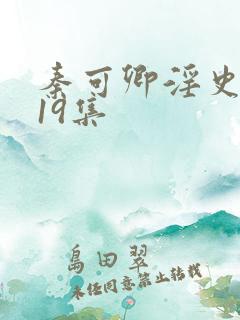 秦可卿淫史
19集
島田翠
未经同意禁止转载